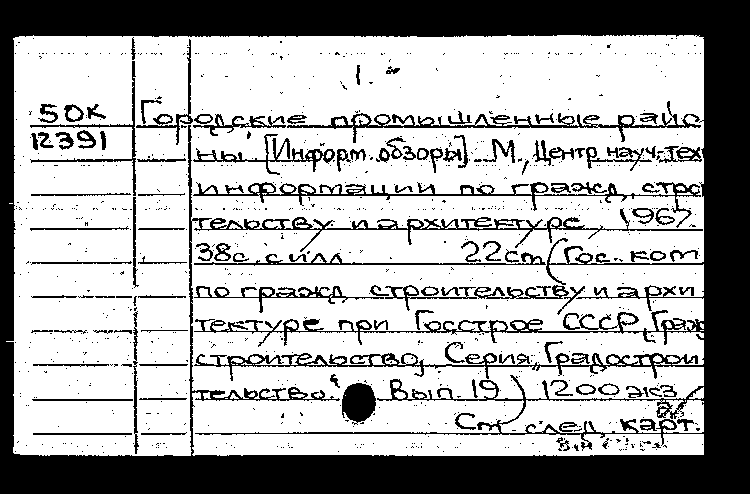 1.
50К Городские промышленные райо-
12391 ны [Информ. обзоры] М., Центр науч.-тех
информации по гражд. строи
тельству и архитектуре, 1967.
38с. с илл. 22см (Гос. ком
по гражд. строительству и архи
тектуре при Госстрое СССР, Граж
строительство, Серия „Градострои-
тельство“ Вып. 19) 1200 экз
См. след. карт.